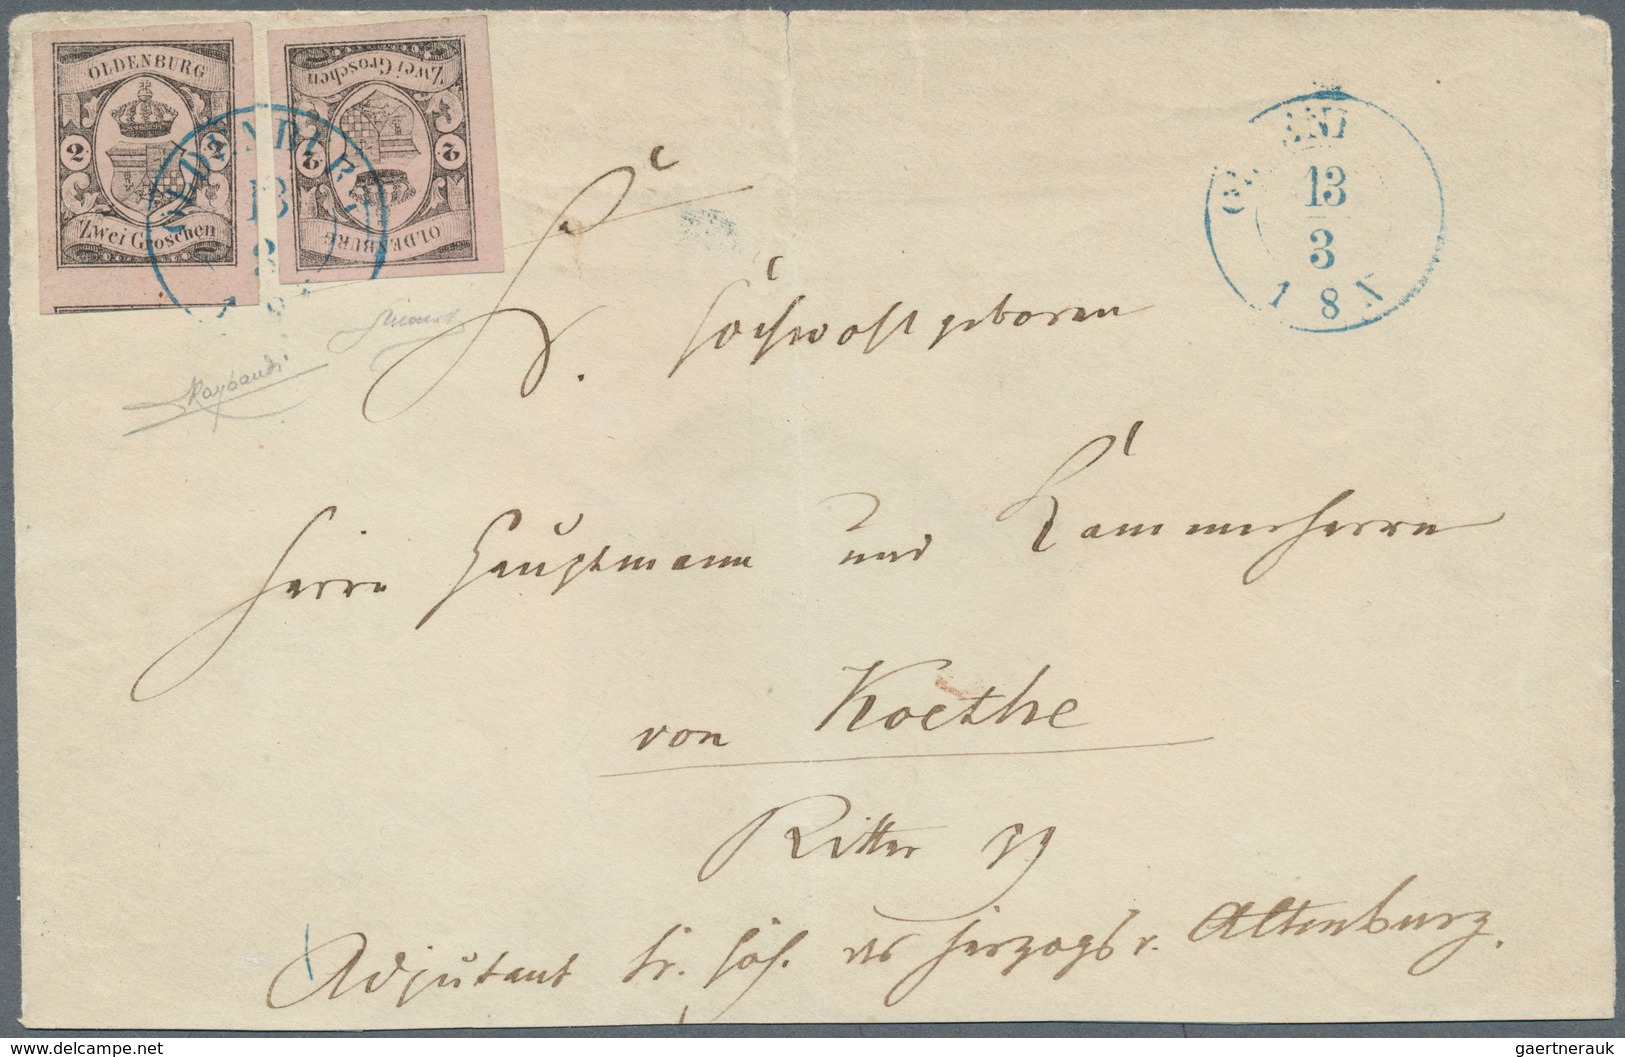 OLDENBURG
2 2
Zwei Groschen
OLDENBURG
2 2
Zwei Groschen
OLDENBURG
13
3
13
3
1 8
Raybaudi
Sr
Hochwohlgeboren
Herrn Hauptmann und Kammerherrn
von Koethe
Ritter pp
Adjutant Sr. Hoh. des Herzogs v. Altenburg.
www.delcampe.net
gaertnerauk